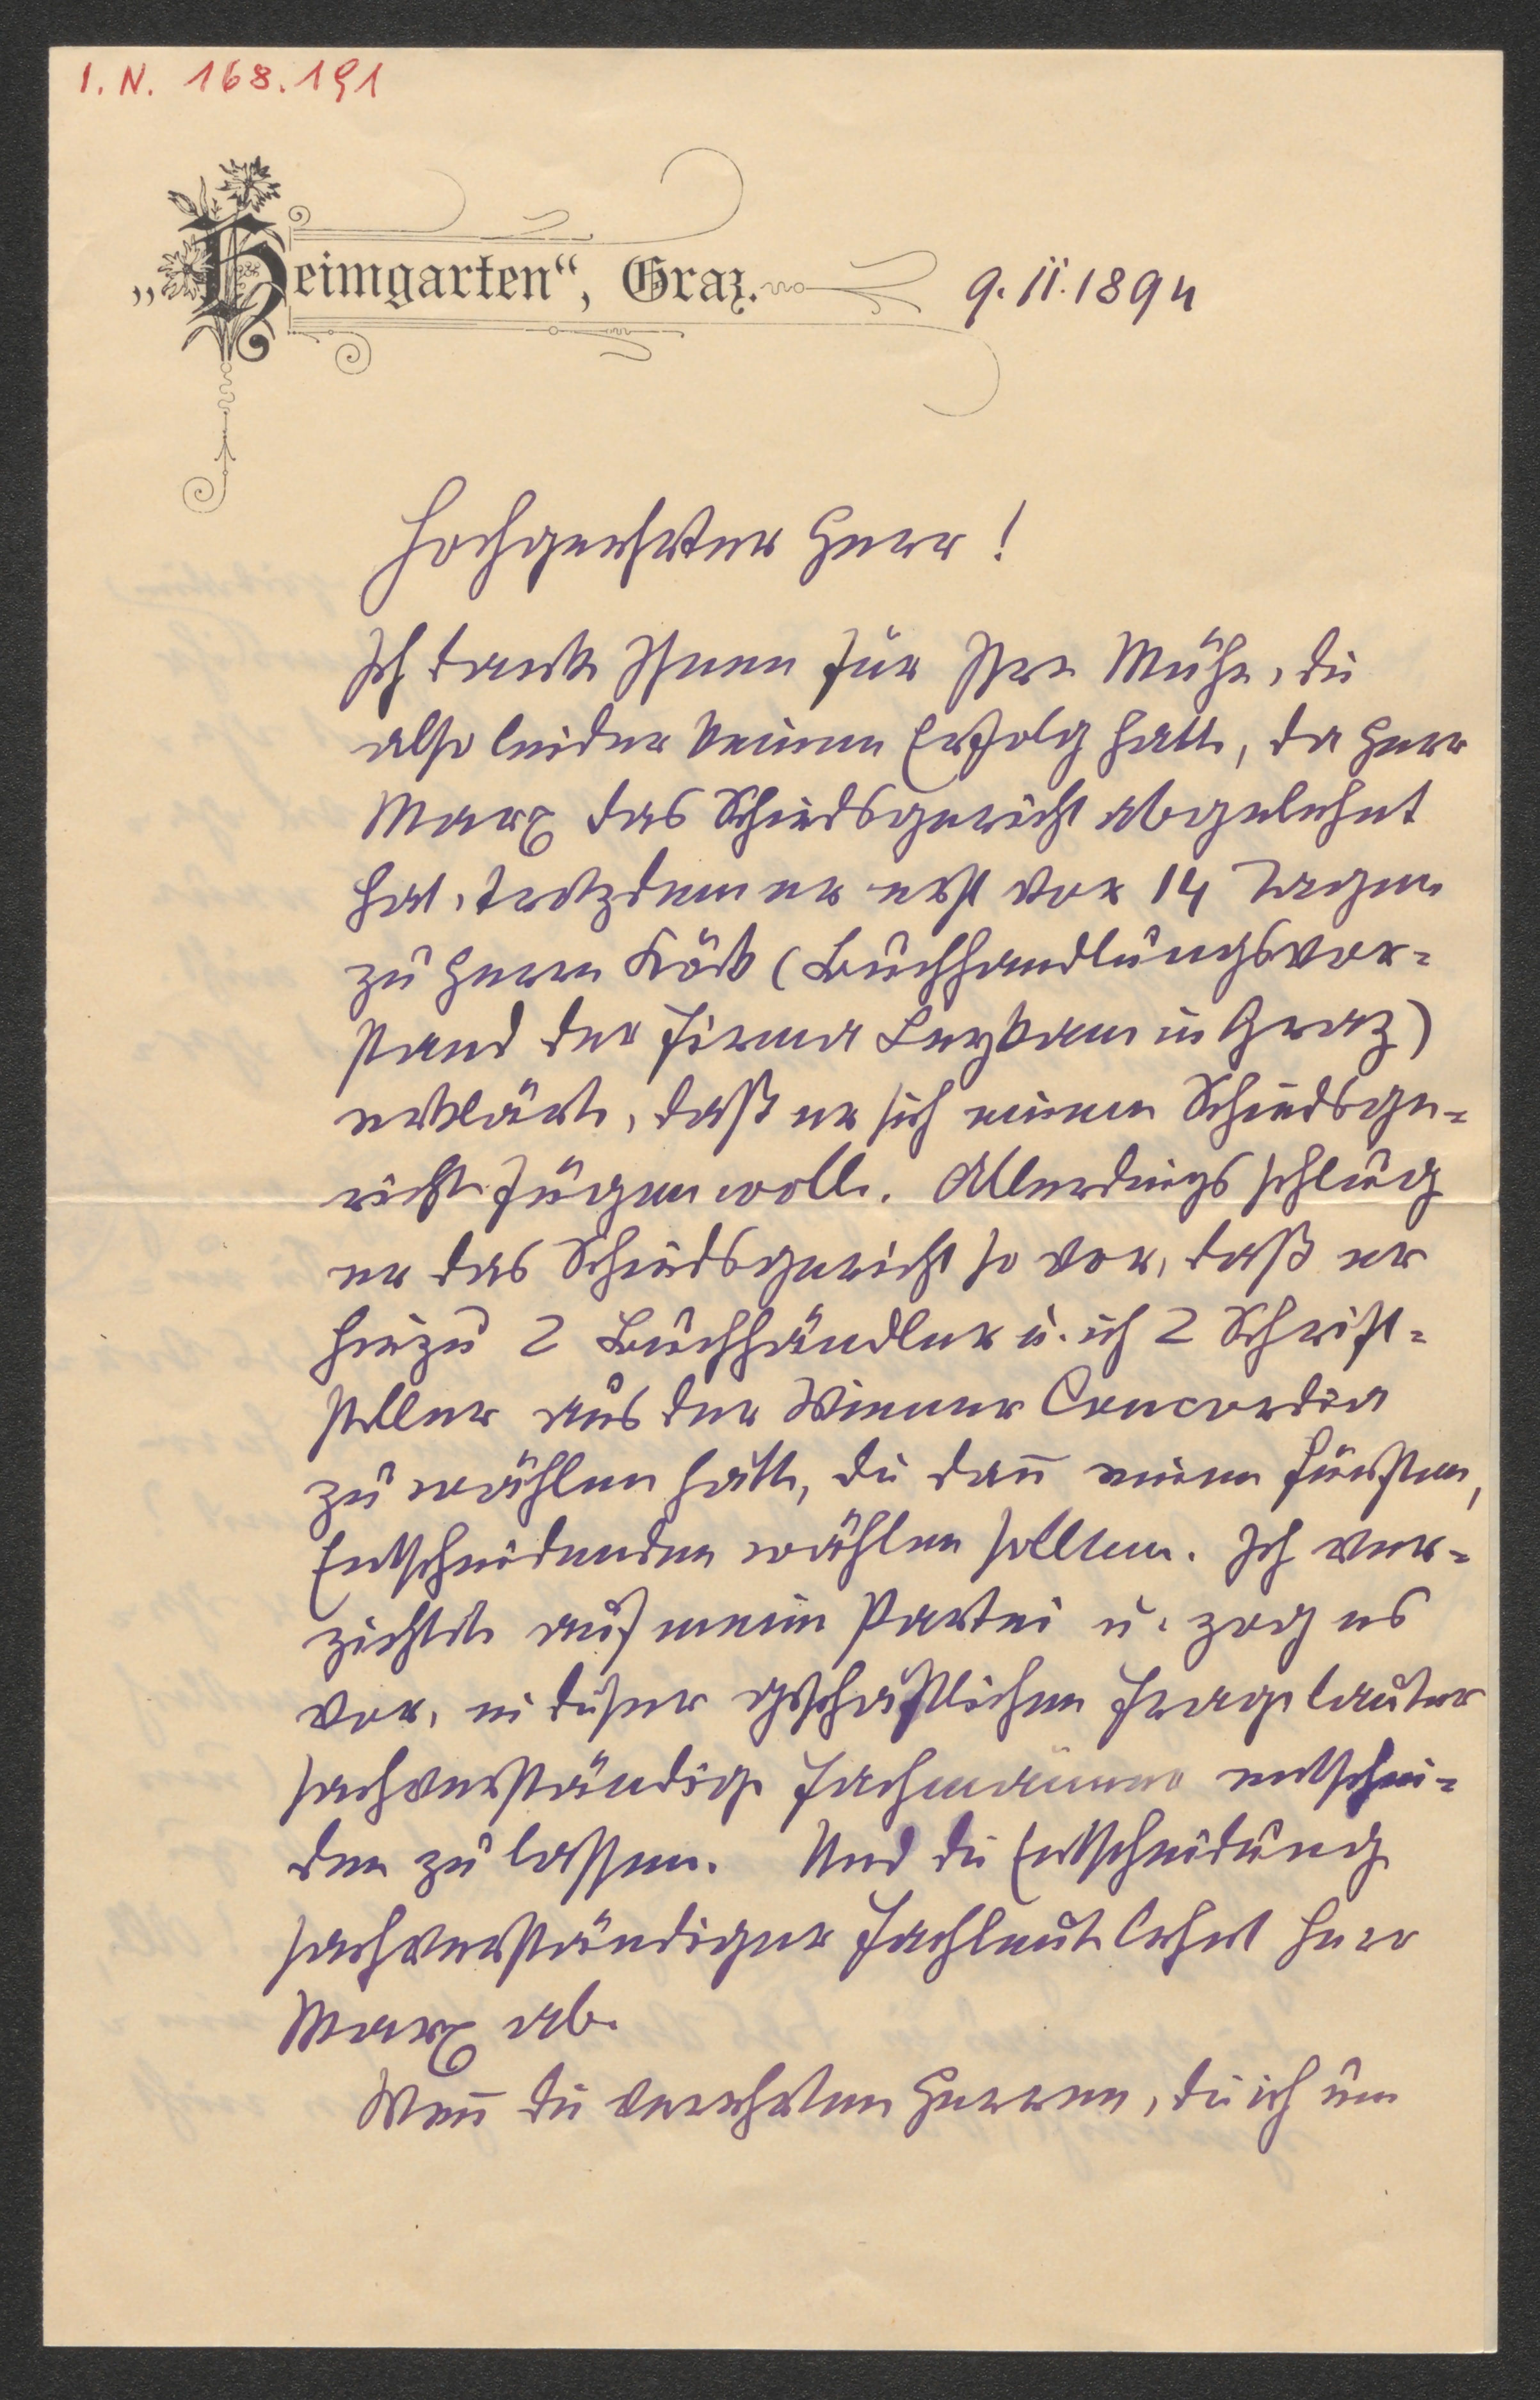 I. N. 168.191
„Heimgarten“, Graz.
9. II. 1894
Hochgeehrter Herr!
Ich danke Ihnen für Ihre Mühe, die
also leider keinen Erfolg hatte, da Herr
Marx das Schiedsgericht abgelehnt
hat, trotzdem er erst vor 14 Tagen
zu Herrn (Buchhandlungsvor=
stand der Firma Leykam in Graz)
erklärte, daß er sich einem Schiedsge=
richte fügen wolle. Allerdings schlug
er das Schiedsgericht so vor, daß er
hiezu 2 Buchhändler u. ich 2 Schrift=
steller aus der Wiener Concordia
zu wählen hätte, die dañ einen Fünften,
Entscheidenden wählen sollten. Ich ver=
zichtete auf meine Partei u. zog es
vor, in dieser geschäftlichen Frage lauter
sachverständige Fachmänner entschei=
den zu lassen. Und die Entscheidung
sachverständiger Fachleute lehnt Herr
Marx ab.
Weñ die verehrten Herren, die ich um